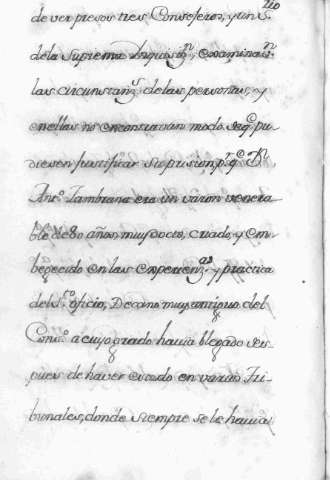 210
de ver presos tres Consejeros, y un S.
de la Suprema Inquisiz.n examinavan
las circunstanz.s de las personas, y
en ellas no encontravan modo seg.o pu-
diesen justificar su prision, p.r q.e Fr.
Ant.o Zambrana era un varon venera
ble de 80 años, muy docto, criado, y en-
begecido en las experienz.as y practica
del S.to oficio, Decano muy antiguo del
Cons.o a cuyo grado havia llegado des-
pues de haver estado en varios Tri-
bunales, donde siempre se le havia